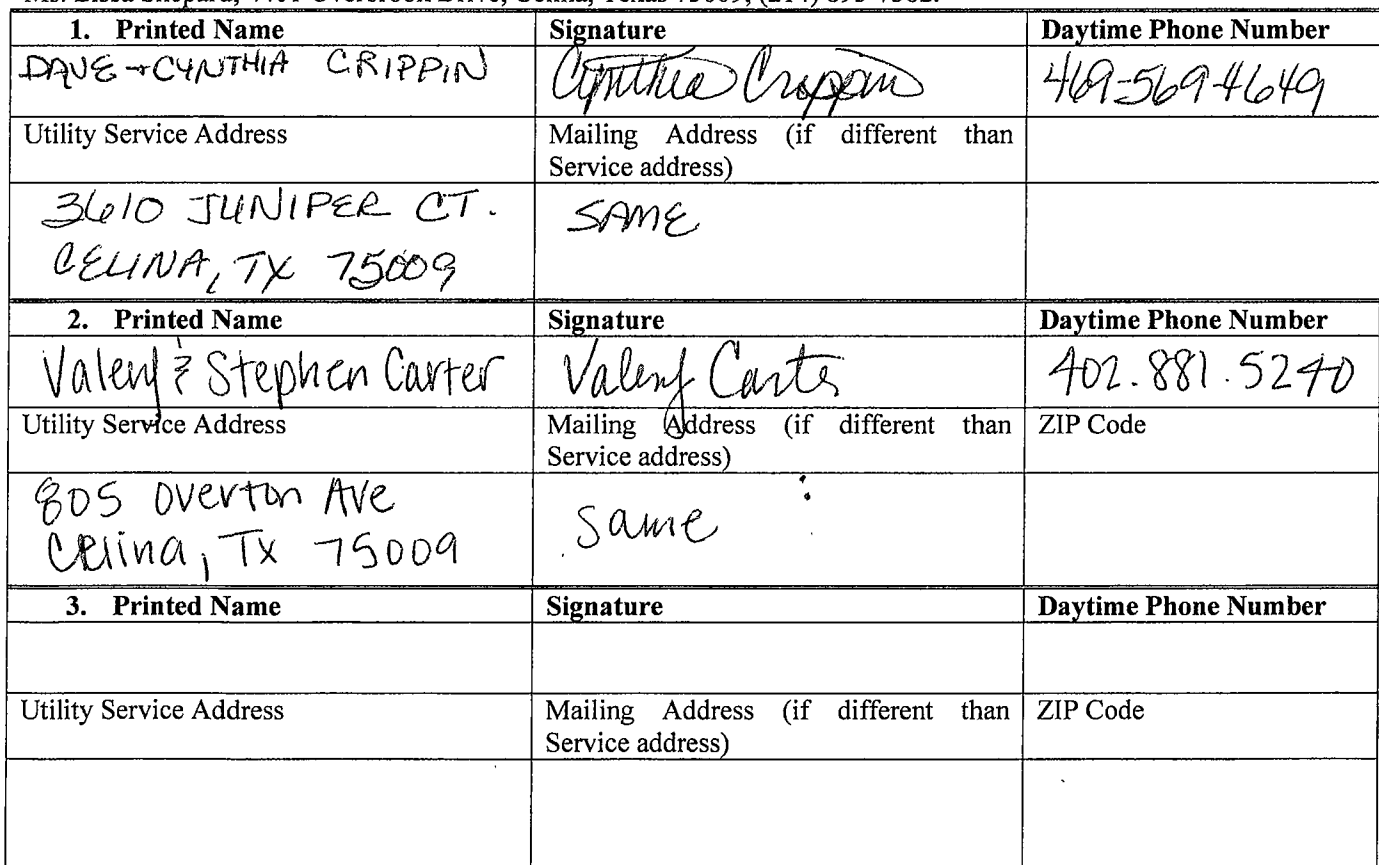 1. Printed Name Signature Daytime Phone Number
DAVE + CYNTHIA CRIPPIN Cynthia Crippin 469-569-4649
Utility Service Address Mailing Address (if different than
Service address)
3610 JUNIPER CT. SAME
CELINA, TX 75009
2. Printed Name Signature Daytime Phone Number
Valery & Stephen Carter Valery Carter 402.881.5240
Utility Service Address Mailing Address (if different than ZIP Code
Service address)
805 Overton Ave same
Celina, TX 75009
3. Printed Name Signature Daytime Phone Number
Utility Service Address Mailing Address (if different than ZIP Code
Service address)